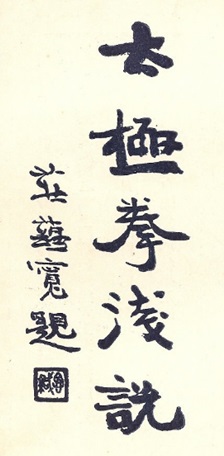 太極拳淺說
莊蘊寬題